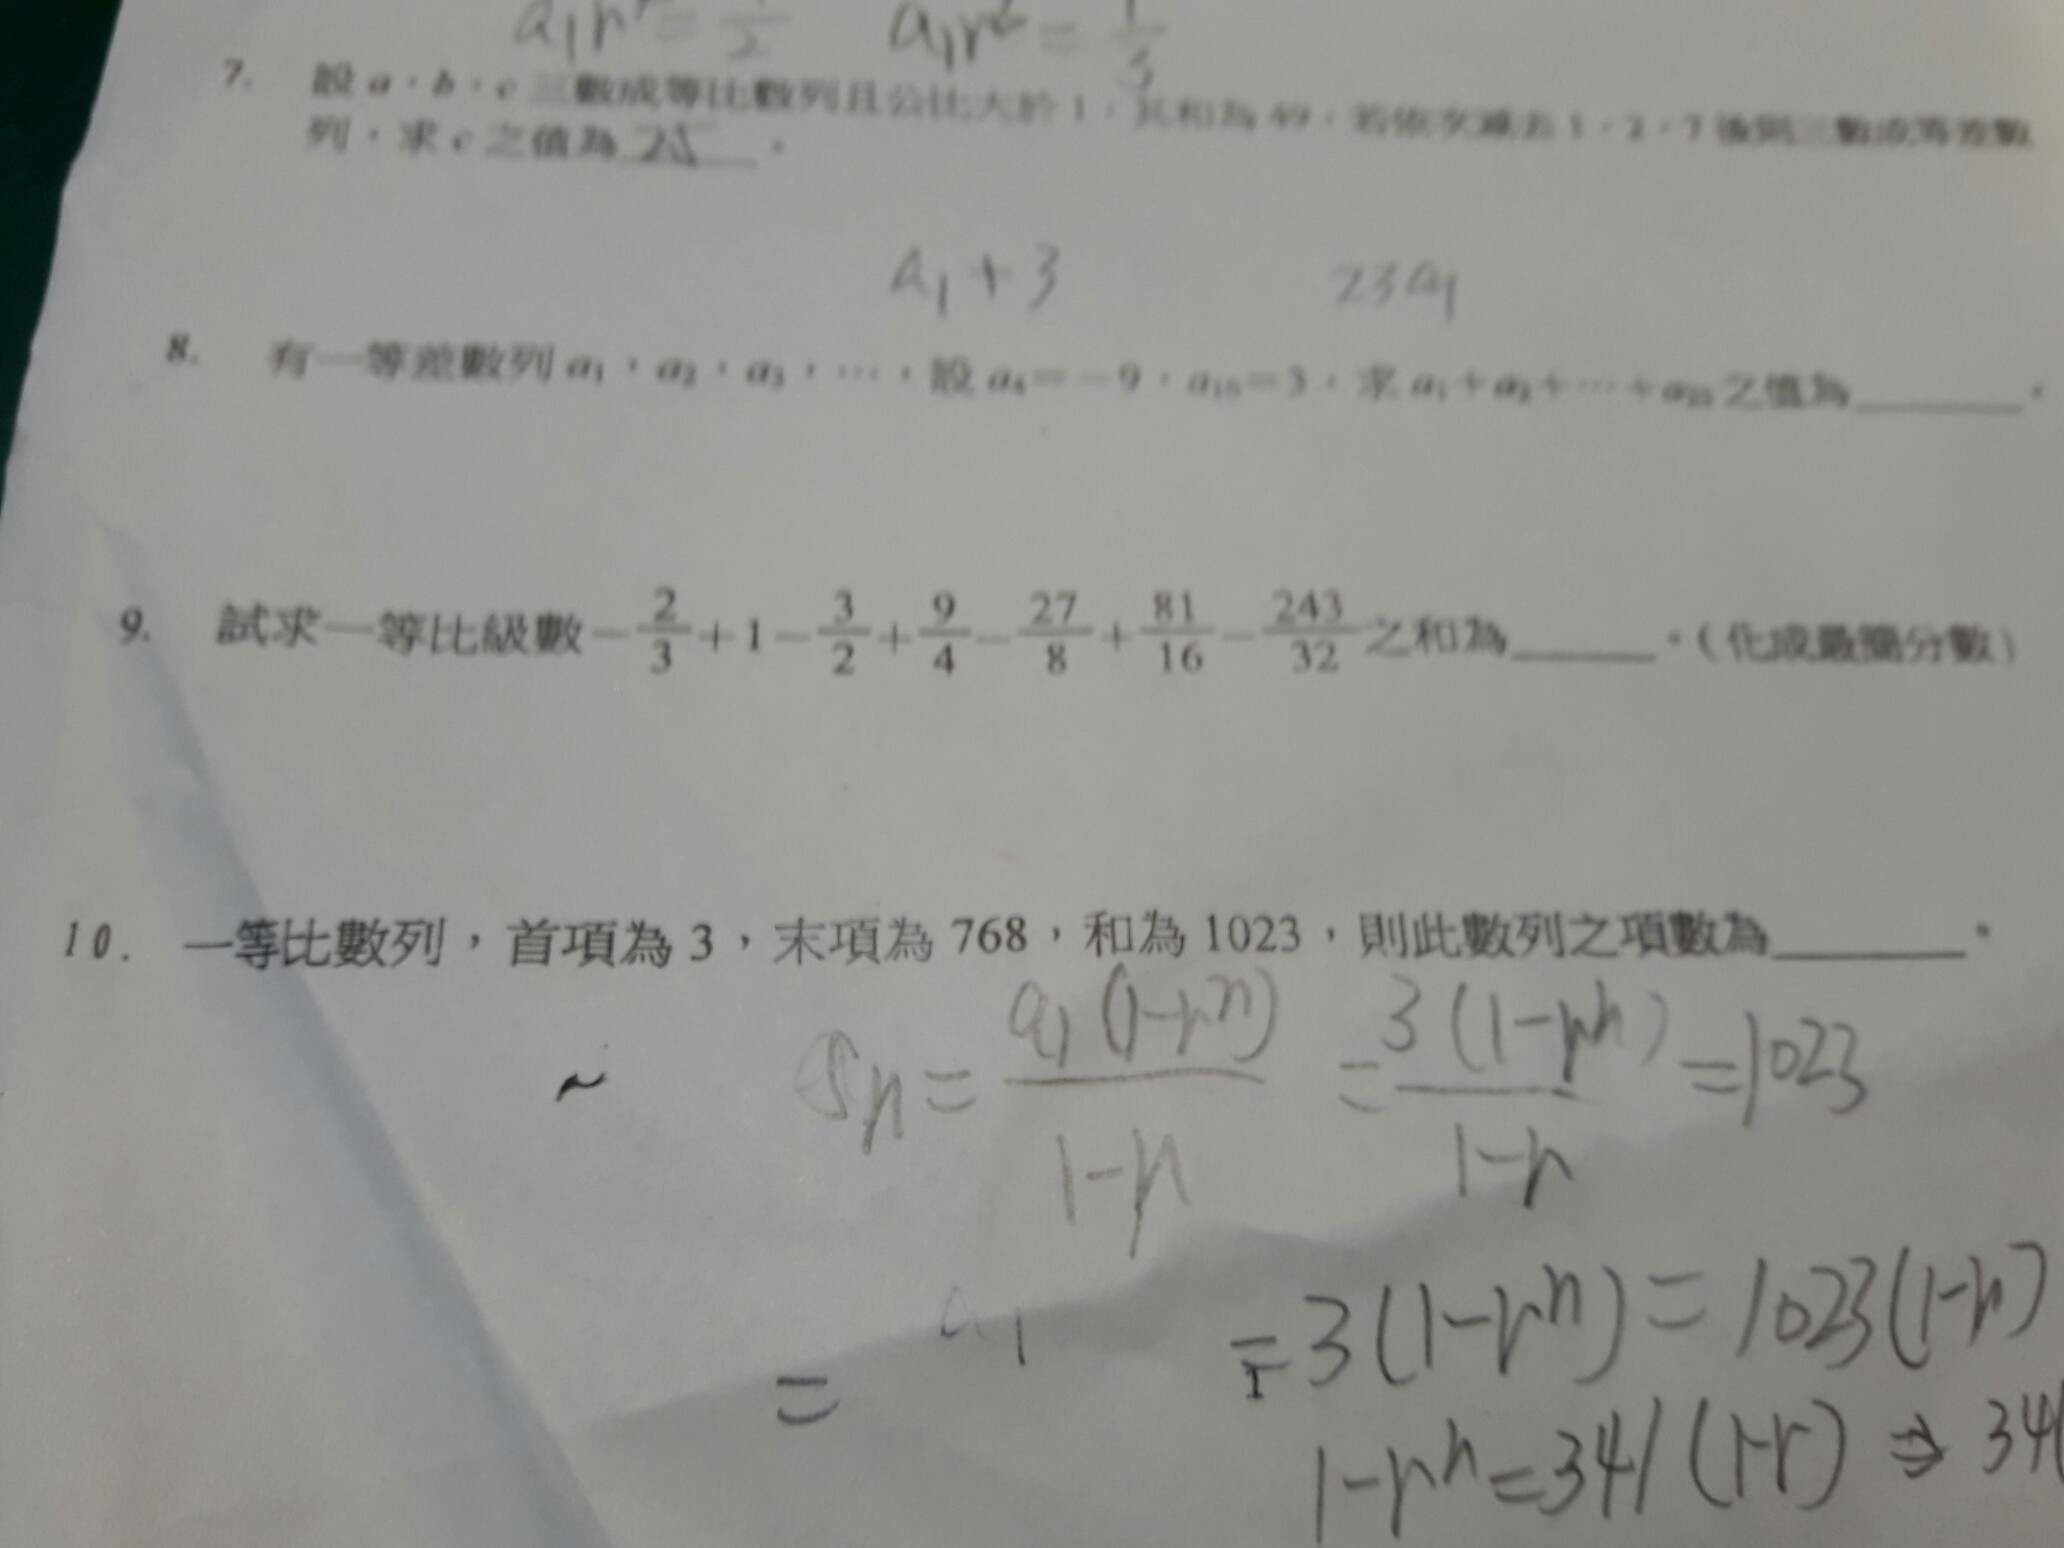 a₁r = 1/2 a₁r² = 1/3
7. 設 a，b，c 三數成等比數列且公比大於 1，其和為 49，若依次減去 1，2，7 後則三數成等差數
列，求 c 之值為 25 。
a₁+3 23a₁
8. 有一等差數列 a₁，a₂，a₃，…，設 a₄=-9，a₁₀=3，求 a₁+a₂+…+a₂₃ 之值為______。
9. 試求一等比級數 -2/3+1-3/2+9/4-27/8+81/16-243/32 之和為______。（化成最簡分數）
10. 一等比數列，首項為 3，末項為 768，和為 1023，則此數列之項數為______。
~ Sn = a₁(1-rⁿ)/1-r = 3(1-rⁿ)/1-r =1023
= a₁
= 3(1-rⁿ) = 1023(1-r)
1-rⁿ=341(1-r) ⇒ 341